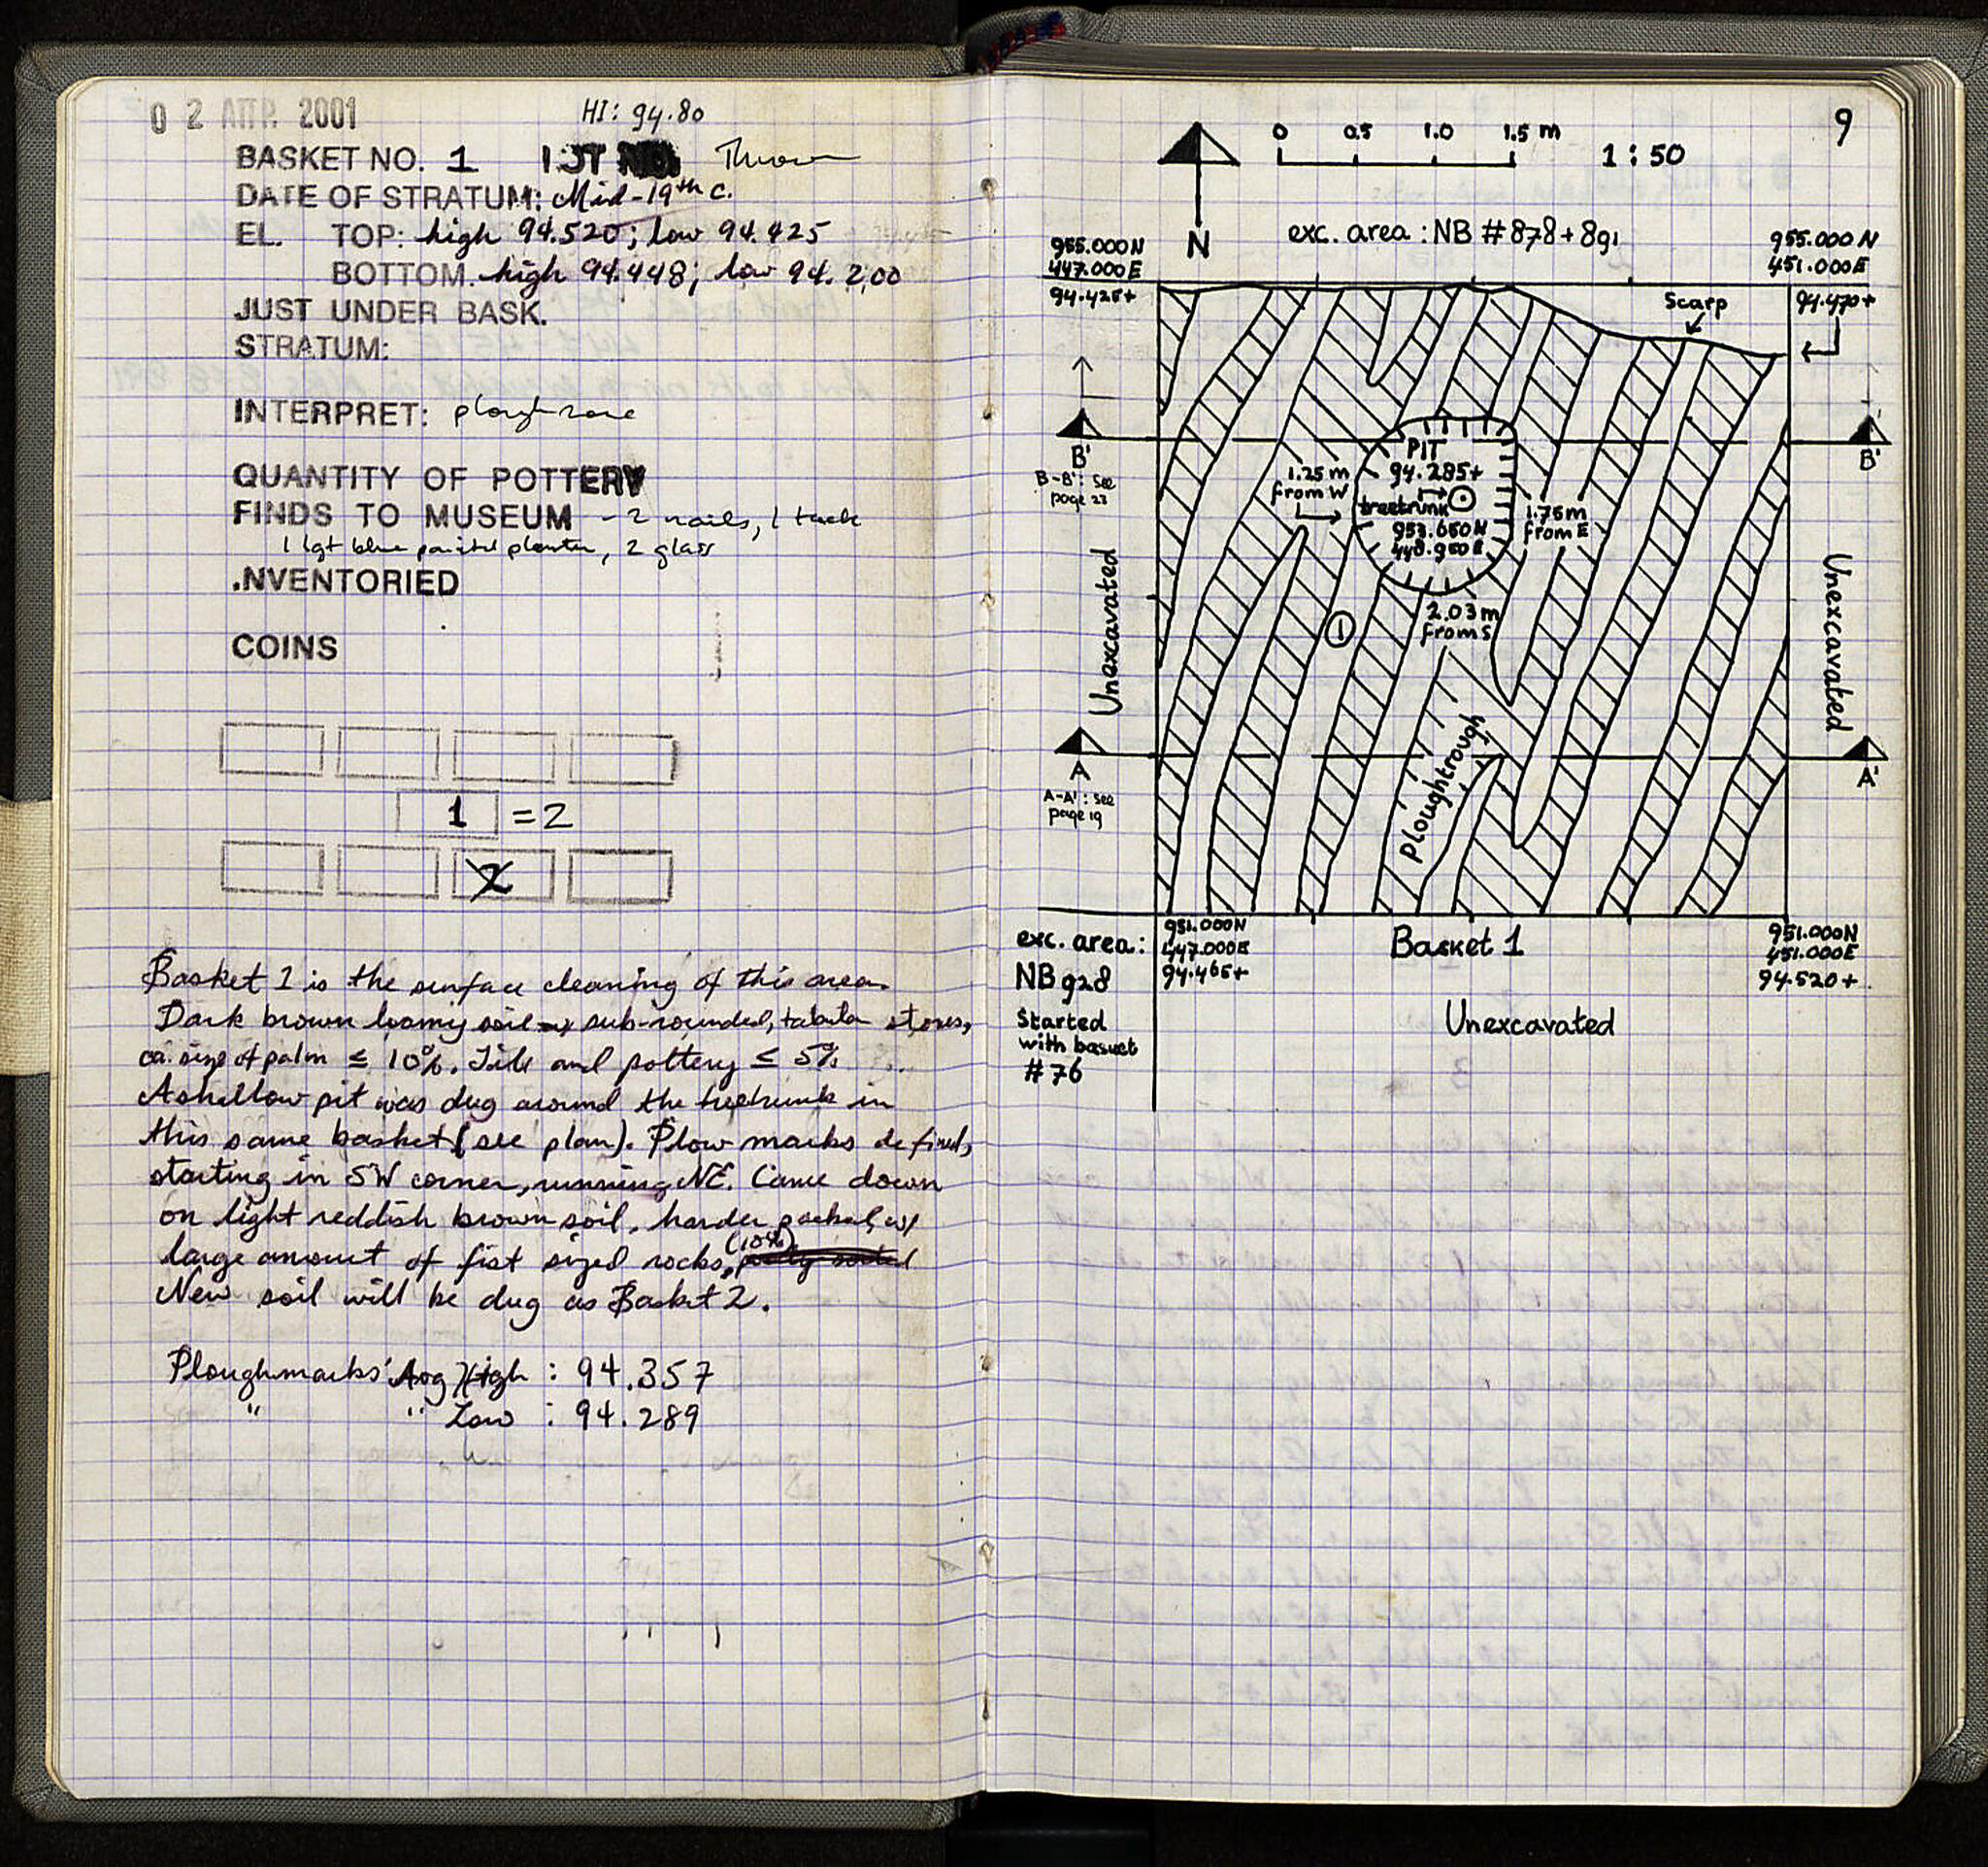 02 ΑΠΡ. 2001
HI: 94.80
BASKET NO. 1 1 JT NO. Thrown
DATE OF STRATUM: Mid-19th c.
EL. TOP: high 94.520; low 94.425
BOTTOM. high 94.448; low 94.200
JUST UNDER BASK.
STRATUM:
INTERPRET: plough zone
QUANTITY OF POTTERY
FINDS TO MUSEUM - 2 nails, 1 tack
1 lgt blue painted plaster, 2 glass
.NVENTORIED
COINS
1 = 2
2
Basket 1 is the surface cleaning of this area.
Dark brown loamy soil sub-rounded, tabular stones,
ca. size of palm ≤ 10%. Tile and pottery ≤ 5%
A shallow pit was dug around the treetrunk in
this same basket (see plan). Plow marks defined,
starting in SW corner, running NE. Came down
on light reddish brown soil, harder packed, w/
large amount of fist sized rocks, (10%)
New soil will be dug as Basket 2.
Ploughmarks' Avg High : 94.357
" " Low : 94.289
9
0 0.5 1.0 1.5 m
1:50
N
exc. area: NB #878+891
955.000N
447.000E
94.425+
955.000N
451.000E
94.470+
Scarp
B'
B-B': see
page 23
B'
PIT
94.285+
treetrunk
953.650N
448.950E
1.25 m
from W
1.75m
from E
2.03m
from S
1
Unexcavated
Unexcavated
ploughtrough
A
A-A': see
page 19
A'
exc. area:
NB 928
Started
with basket
#76
951.000N
447.000E
94.465+
Basket 1
951.000N
451.000E
94.520+
Unexcavated